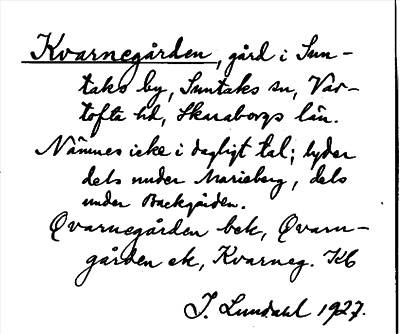 Kvarnegården, gård i Sun-
taks by, Suntaks sn, Var-
tofta hd, Skaraborgs län.
Nämnes icke i dagligt tal; lyder
dels under Marieberg, dels
under Backgården.
Qvarnegården bek, Qvarn-
gården ek, Kvarneg. Kb
J. Lundahl 1927.